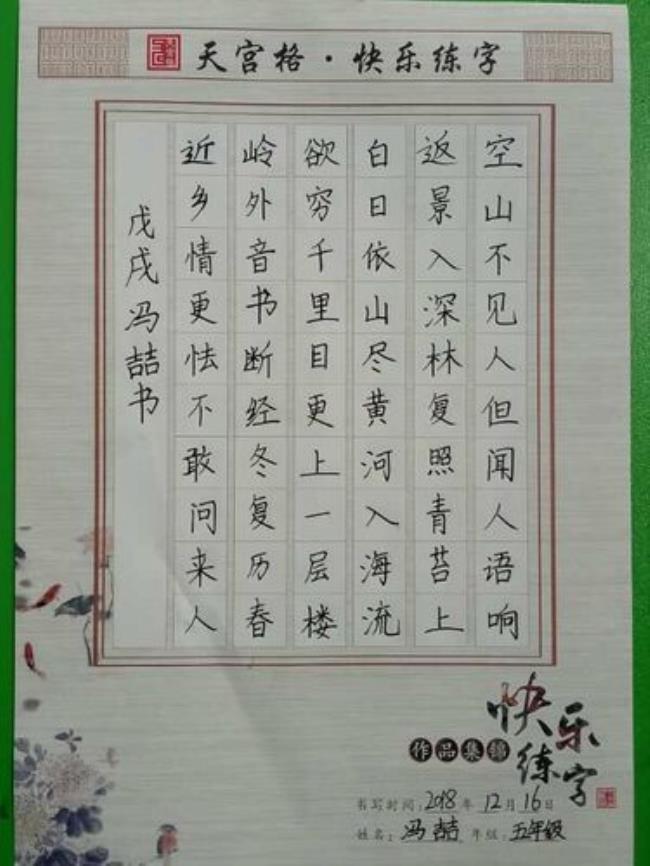 天宫格·快乐练字
空山不见人但闻人语响
返景入深林复照青苔上
白日依山尽黄河入海流
欲穷千里目更上一层楼
岭外音书断经冬复历春
近乡情更怯不敢问来人
戊戌冯喆书
快乐练字
作品集锦
书写时间：2018年12月16日
姓名：冯喆 年级：五年级